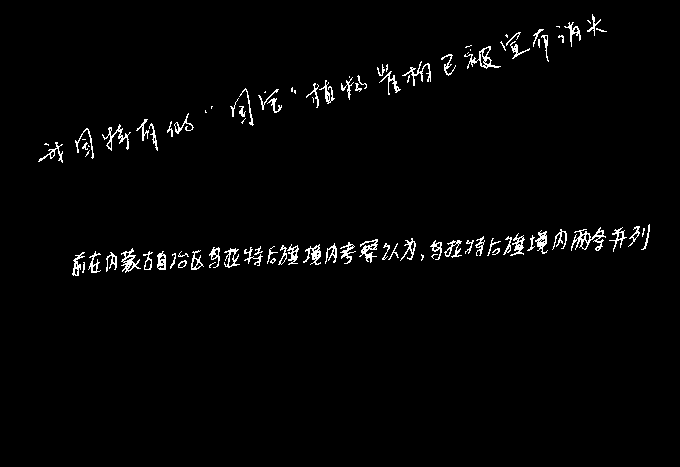 我国特有的“国宝”植物崖柏已被宣布消失
前在内蒙古自治区乌拉特后旗境内考察认为,乌拉特后旗境内两条并列